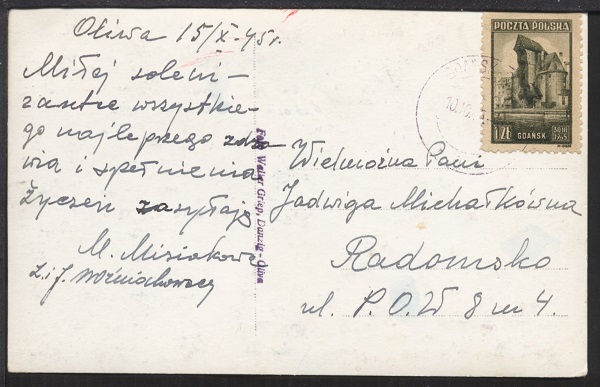 Oliwa 15/X-45r.
Miłej soleni-
zantce wszystkie-
go najlepszego zdro
wia i spełnienia
życzeń zasyłają
M. Misiakowa
Z. i J. Woźniakowscy
Foto Walter Griep, Danzig-Oliva
POCZTA POLSKA
1 ZŁ GDAŃSK 30 III 1945
Wielmożna Pani
Jadwiga Michałkówna
Radomsko
ul. P.O.W 8 m 4.